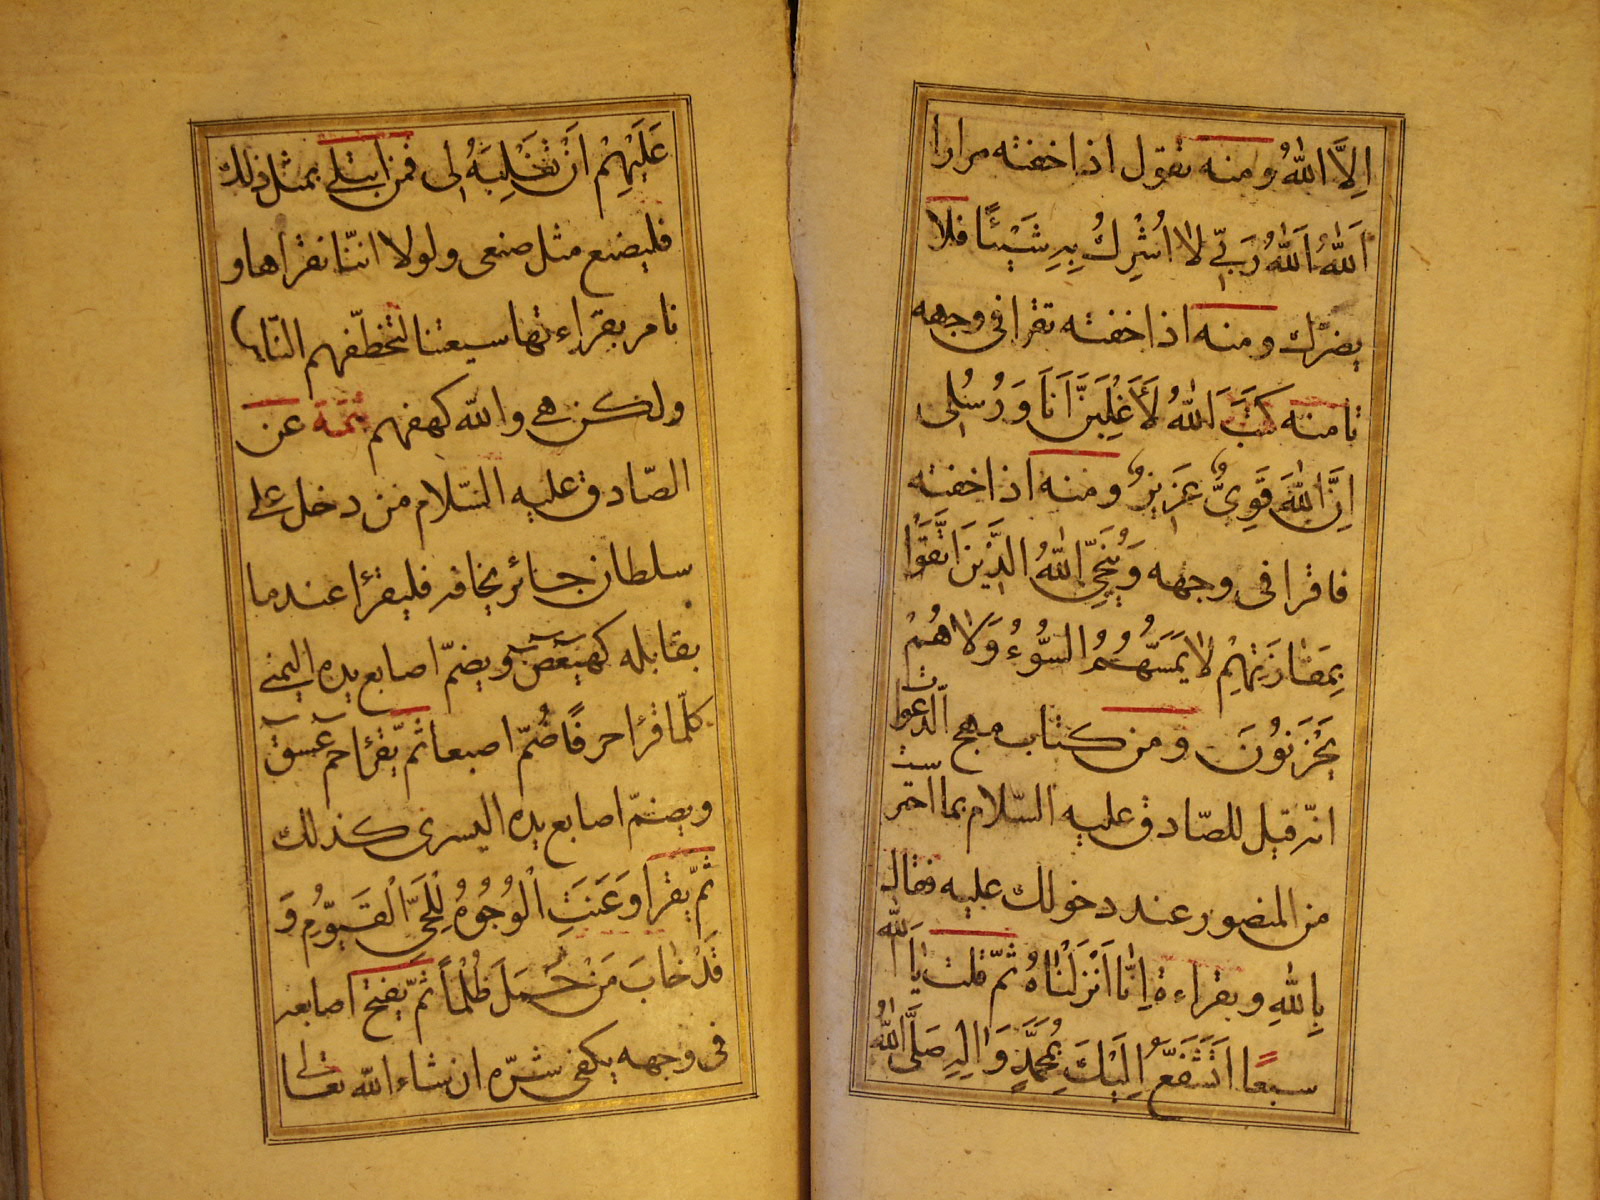 اِلاَّ اللهُ ومنه تقول اذا خفته مرارا
اَللهُ اَللهُ رَبّي لا اُشْرِكُ بِهِ شَيْئًا فلا
يضرّك ومنه اذا خفته تقرا فى وجهه
تامنه كَتَبَ اللهُ لَاَغْلِبَنَّ اَنَا وَرُسُلِى
اِنَّ اللهَ قَوِىٌّ عَزيزٌ ومنه اذا خفته
فاقرا فى وجهه وَيُنَجّى اللهُ الَّذينَ اتَّقَوْا
بِمَفازَتِهِمْ لا يَمَسُّهُمُ السُّوءُ وَلا هُمْ
يَحْزَنُونَ ومن كتاب مهج الدّعوات
انّه قيل للصّادق عليه السّلام بما احترست
من المنصور عند دخولك عليه فقال
بِاللهِ وبقراءة اِنّا اَنْزَلْناهُ ثمّ قلت يا اَلله
سبعًا اَتَشَفَّعُ اِلَيْكَ بِمُحَمَّدٍ وَالِهِ صَلَّى اللهُ
عَلَيْهِمْ اَنْ تَغْلِبَهُ لى فمن ابتلى بمثل ذلك
فليصنع مثل صنعى ولولا انّنا نقراها و
نامر بقراءتها شيعتنا لتخطّفهم النّاس
ولكن هى والله كهفهم تتمّة عن
الصّادق عليه السّلام من دخل على
سلطان جائر يخافه فليقرا عندما
يقابله كهيعص ويضمّ اصابع يده اليمنى
كلّما قرا حرفًا ضَمّ اصبعا ثمّ يقرا حم عسق
ويضمّ اصابع يده اليسرى كذلك
ثمّ يقرا وَعَنَتِ الْوُجُوهُ لِلْحَىِّ الْقَيُّومِ وَ
قَدْ خابَ مَنْ حَمَلَ ظُلْماً ثمّ يفتح اصابعه
فى وجهه يكفى شرّه ان شاء الله تعالى